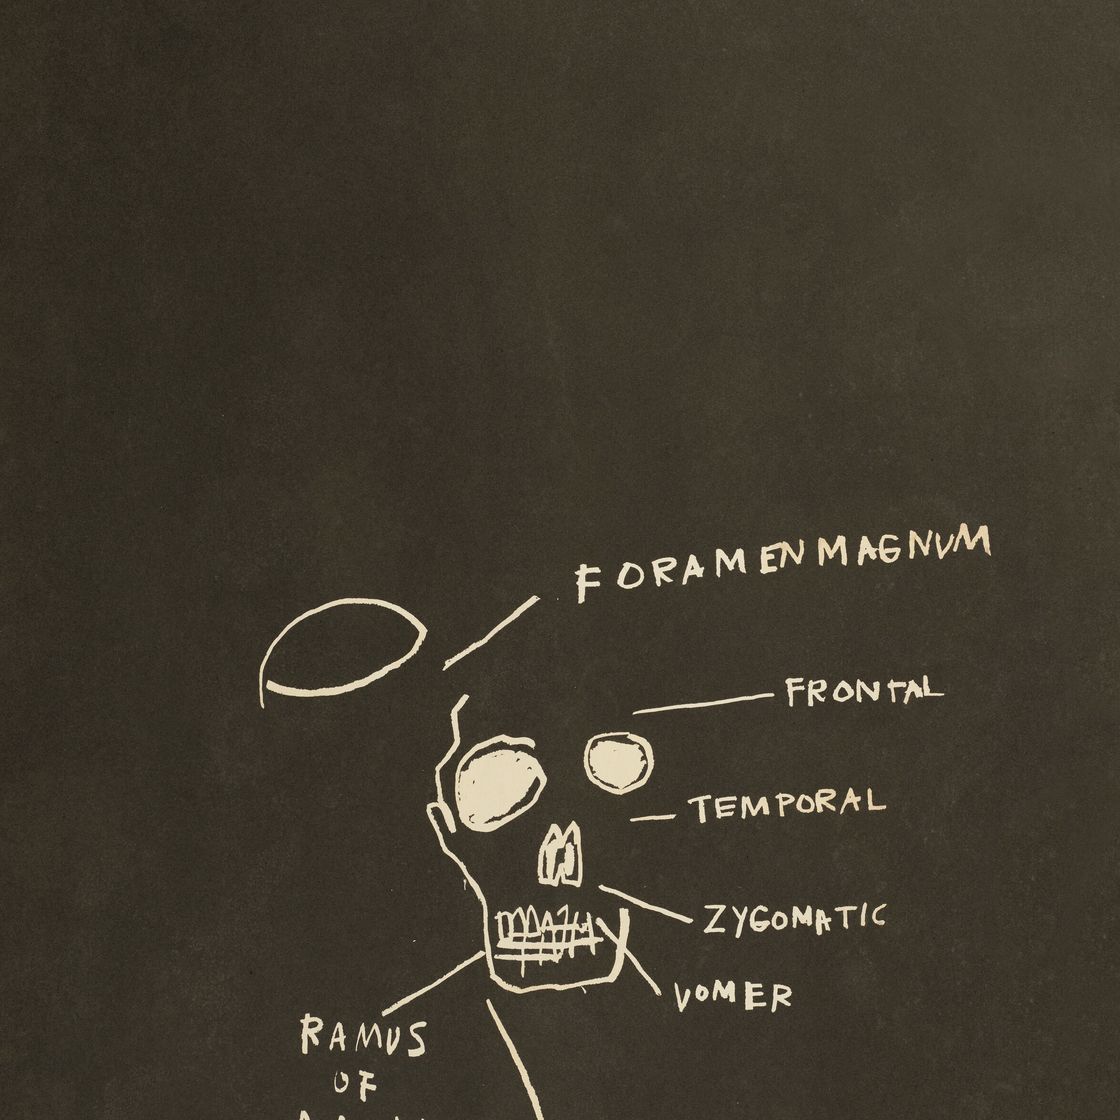 FORAMEN MAGNUM
FRONTAL
TEMPORAL
ZYGOMATIC
VOMER
RAMUS
OF